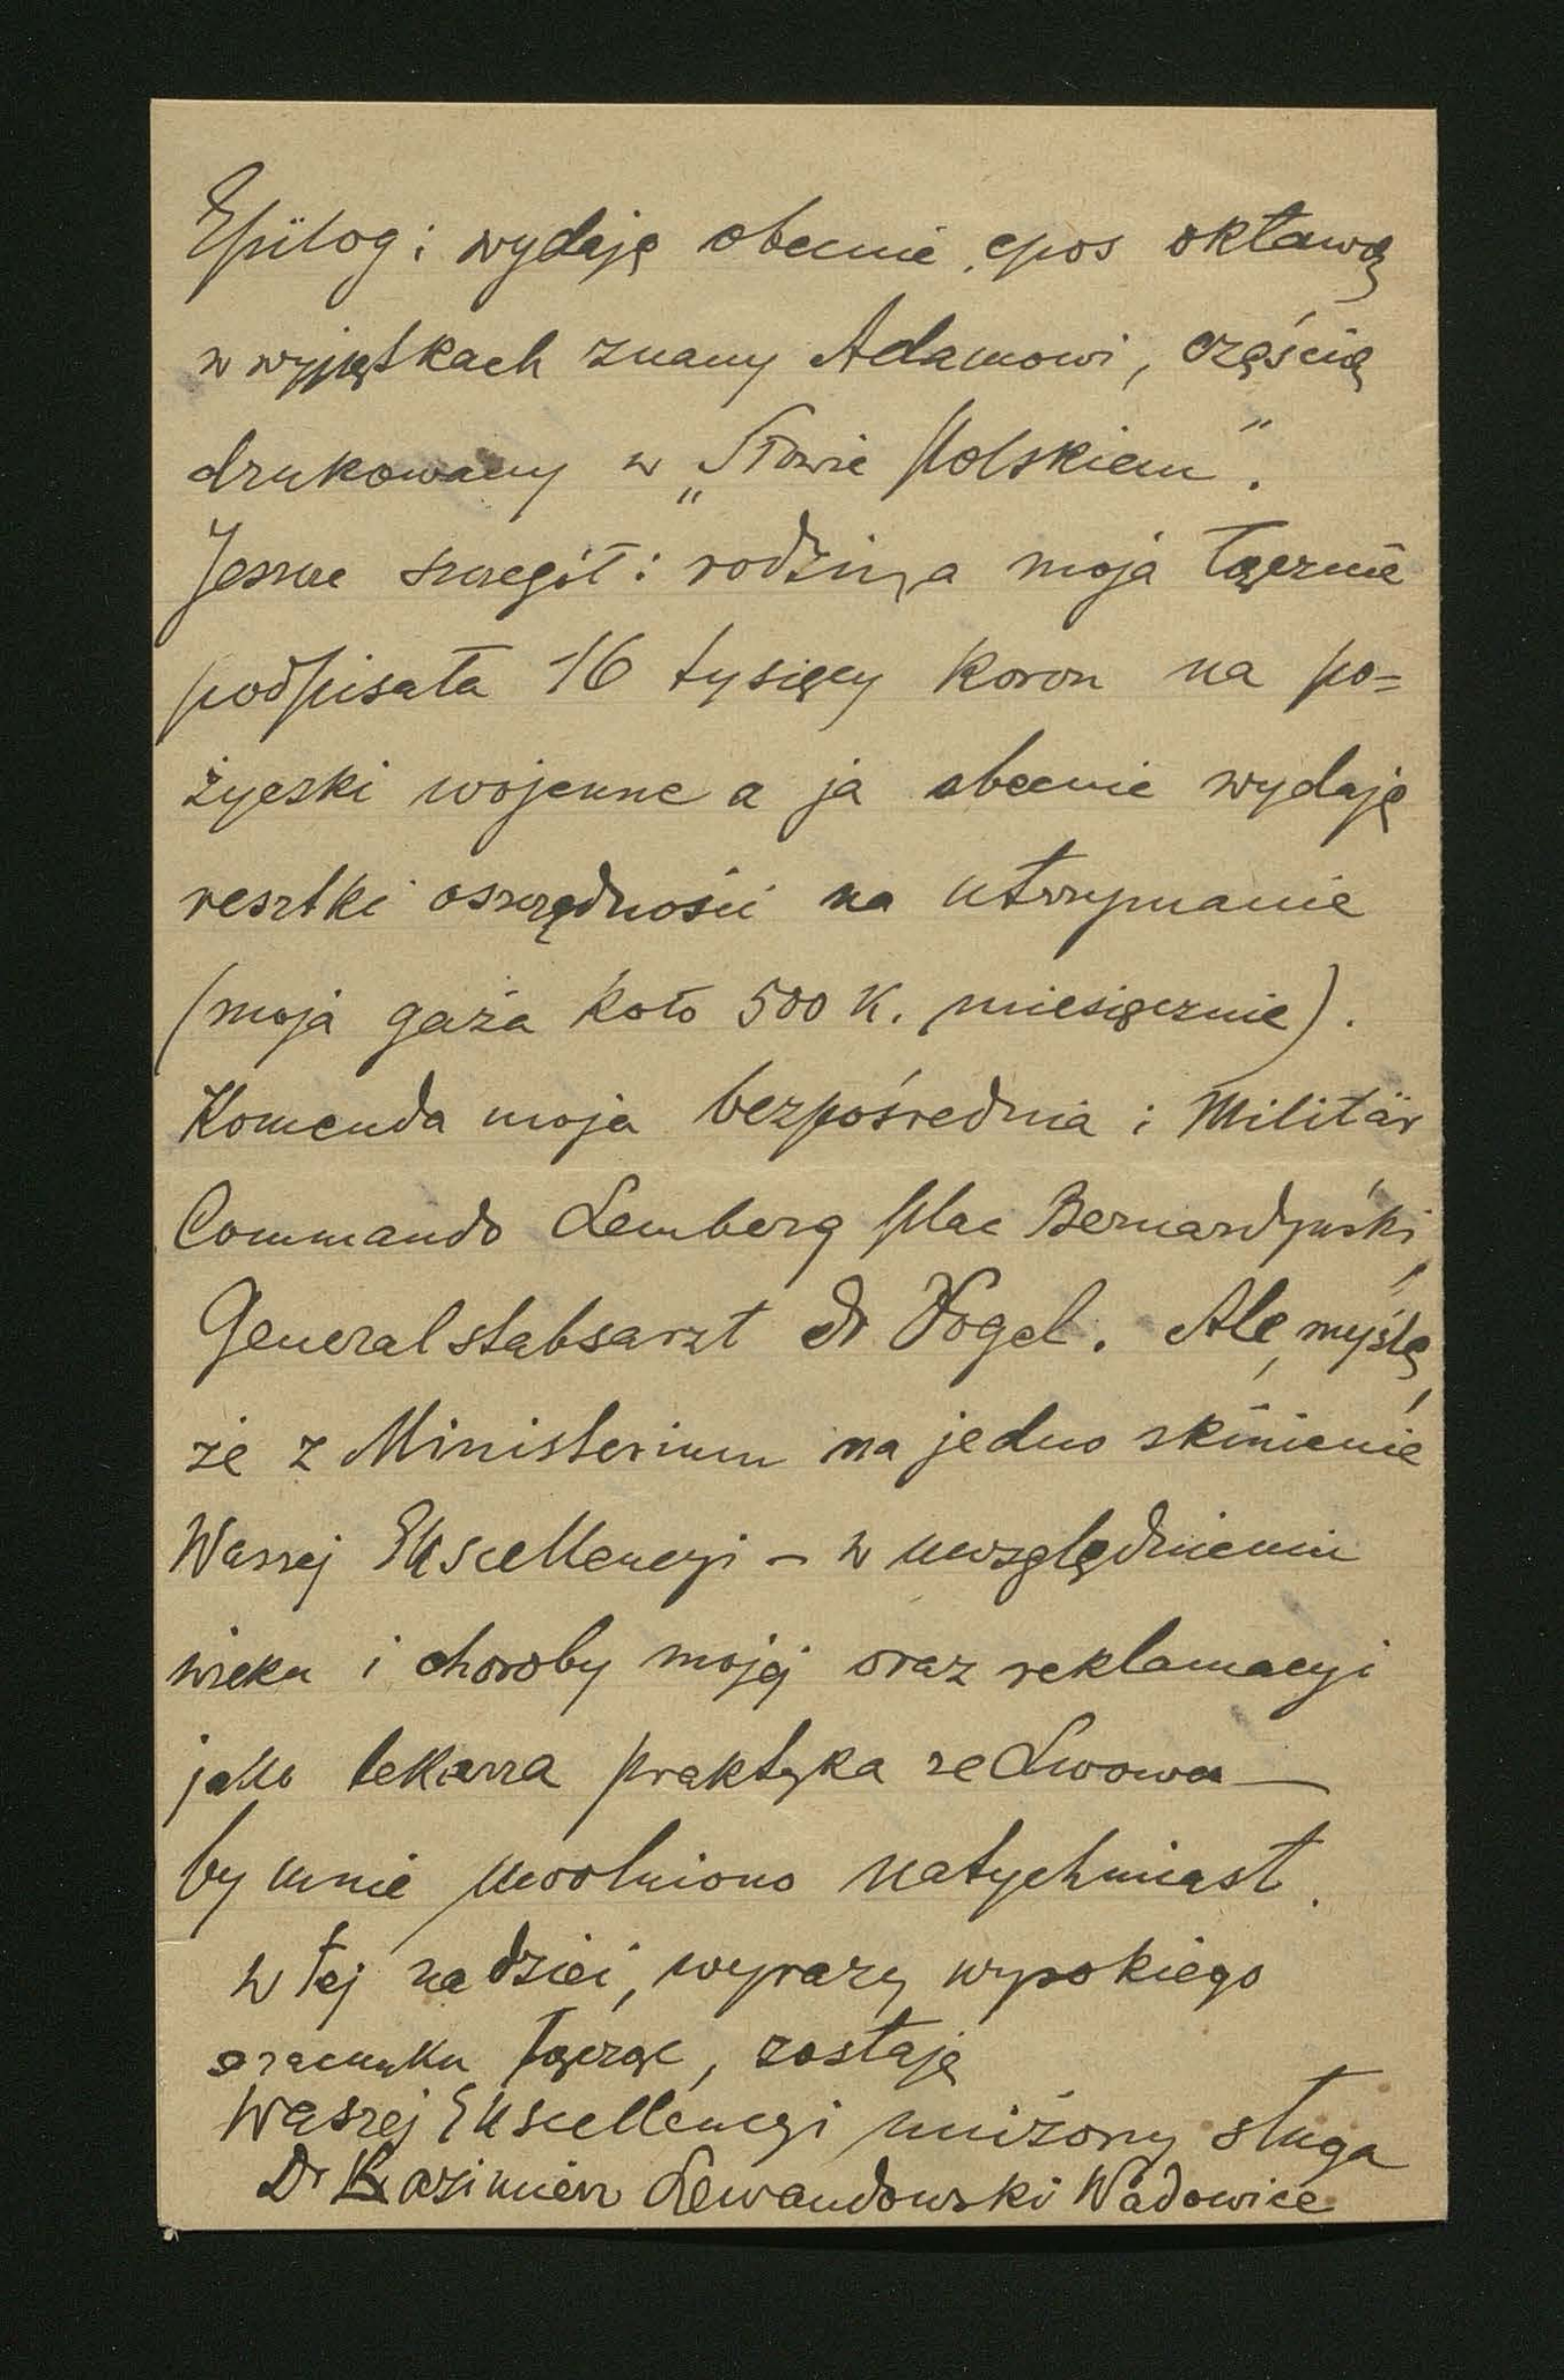 Epilog: wydaję obecnie epos oktawą
w wyjątkach znany Adamowi, częścią
drukowany w „Słowie Polskiem".
Jeszcze szczegół: rodzina moja łącznie
podpisała 16 tysięcy koron na po=
życzki wojenne a ja obecnie wydaję
resztki oszczędności na utrzymanie
(moja gaża koło 500 K. miesięcznie).
Komenda moja bezpośrednia: Militär
Commando Lemberg plac Bernardyński,
Generalstabsarzt dr Vogel. Ale, myślę,
że z Ministerium na jedno skinienie
Waszej Ekscellencyi – w uwzględnieniu
wieku i choroby mojej oraz reklamacyi
jako lekarza praktyka ze Lwowa –
by mnie uwolniono natychmiast.
W tej nadziei, wyrazy wysokiego
szacunku łącząc, zostaję
Waszej Ekscellencyi uniżony sługa
Dr Kazimierz Lewandowski Wadowice